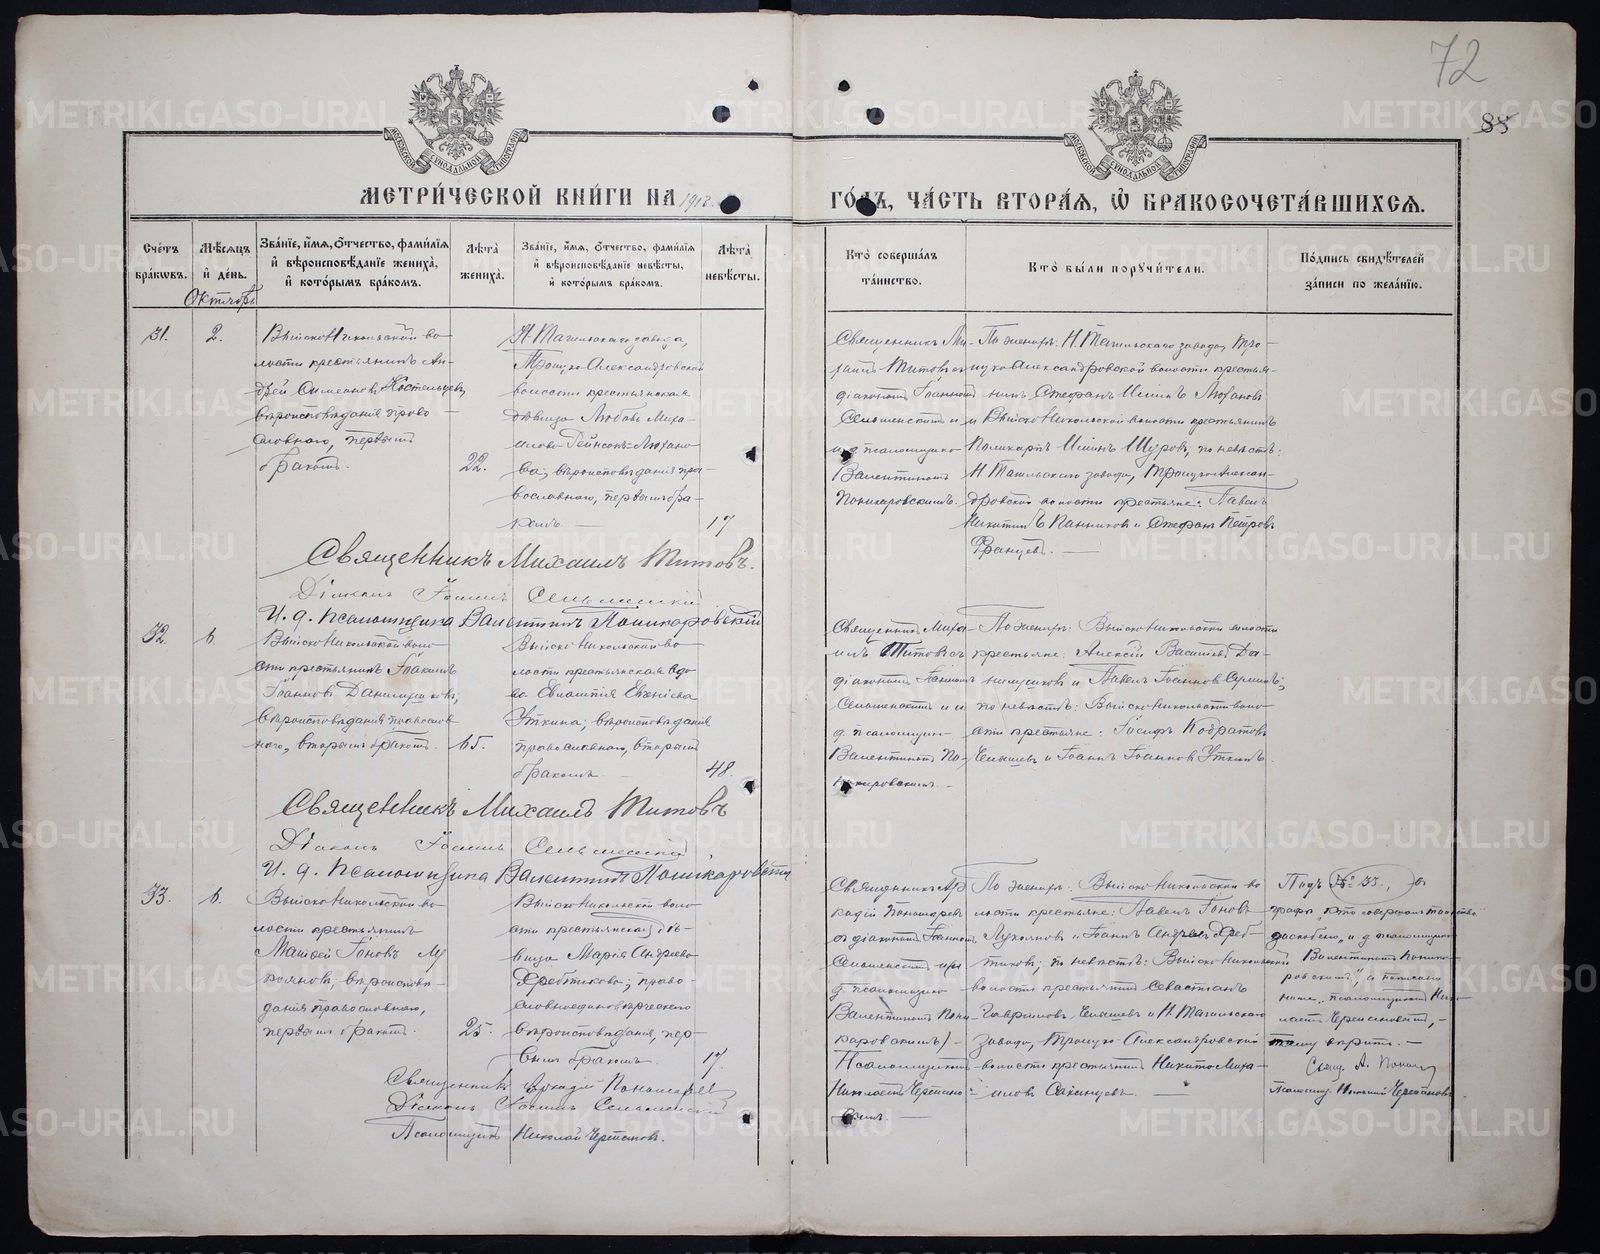 72
88
МЕТРИ́ЧЕСКОЙ КНИ́ГИ НА 1912
ГО́ДЪ, ЧА́СТЬ ВТОРА́Я, Ѡ БРАКОСОЧЕТА́ВШИХСЯ.
МОСКОВСКОЙ СѴНОДАЛЬНОЙ ТИПОГРАФІИ
Сче́тъ бра́кωвъ.
Мѣ́сяцъ и҆ де́нь.
Октябрь
Зва́нїе, и҆́мя, ѻ҆́тчество, фами́лїя и҆ вѣроисповѣ́данїе жениха̀, и҆ кото́рымъ бра́комъ.
Лѣ́та жениха̀.
Зва́нїе, и҆́мя, ѻ҆́тчество, фами́лїя и҆ вѣроисповѣ́данїе невѣ́сты, и҆ кото́рымъ бра́комъ.
Лѣ́та невѣ́сты.
Кто̀ соверша́лъ та́инство.
Кто̀ бы́ли поручи́тели.
По́дпись свидѣ́телей за́писи по жела́нїю.
31.
2.
Выйско Никольской во-
лости крестьянинъ Ан-
дрей Симеоновъ Костельцевъ,
вѣроисповѣданія право-
славнаго, первымъ
бракомъ.
22.
Н Тагильскаго завода,
Троицко-Александровской
волости крестьянская
дѣвица Любовь Миха-
илова
ва, вѣроисповѣданія пра-
вославнаго, первымъ бра-
комъ. —
17
Священникъ Ми-
хаилъ Титовъ съ
діакономъ Іоанномъ
Сельменскимъ и
и. д. псаломщика
Валентиномъ
Поникаровскимъ.
По женихѣ: Н Тагильскаго завода, Тро-
ицко Александровской волости крестья-
нинъ Стефанъ Ильинъ Лоханов
и Выйско Никольской волости крестьянинъ
Поликарпъ Ильинъ Щуровъ; по невѣстѣ:
Н Тагильскаго завода, Троицко Алексан-
дровской волости крестьяне: Павелъ
Никитинъ и Стефанъ Петровъ
. —
Священникъ Михаилъ Титовъ.
Діаконъ Іоаннъ Сельменскій
И. д. Псаломщика Валентинъ Поникаровскій
32.
6.
Выйско Никольской воло-
сти крестьянинъ Іоакимъ
Іоанновъ Данилушковъ,
вѣроисповѣданія православ-
наго, вторымъ бракомъ.
65.
Выйско Никольской во-
лости крестьянская вдо-
ва Евлампія Евгеніева
Уткина; вѣроисповѣданія
православнаго, вторымъ
бракомъ. —
48.
Священникъ Миха-
илъ Титовъ съ
діакономъ Іоанномъ
Сельменскимъ и и.
д. псаломщика
Валентиномъ По-
никаровскимъ. —
По женихѣ: Выйско Никольской волости
крестьяне: Алексій Василіевъ Да-
нилушковъ и Павелъ Іоанновъ ;
по невѣстѣ: Выйско Никольской воло-
сти крестьяне: Іосифъ Кодратовъ
и Іоаннъ Іоанновъ Уткинъ.
Священникъ Михаилъ Титовъ
Діаконъ Іоаннъ Сельменскій
И. д. Псаломщика Валентинъ Поникаровскій
33.
6.
Выйско Никольской во-
лости крестьянинъ
Матѳей Іоновъ Лу-
кояновъ, вѣроисповѣ-
данія православнаго,
первымъ бракомъ.
25.
Выйско Никольской воло-
сти крестьянская дѣ-
вица Марія Андреева
Хребтикова; право-
славно единовѣрческаго
вѣроисповѣданія, пер-
вымъ бракомъ.
17.
Священникъ Ар-
кадій Пономаревъ
съ діакономъ Іоанномъ
Сельменскимъ
д. псаломщика
Валентиномъ Пони-
каровскимъ) —
Псаломщикомъ
Николаемъ Черепано-
вымъ. —
По женихѣ: Выйско Никольской во-
лости крестьяне: Павелъ Іоновъ
Лукояновъ и Іоаннъ Андреевъ Хреб-
тиковъ; по невѣстѣ: Выйско Никольской
волости крестьянинъ Севастіанъ
Гавриловъ и Н. Тагильскаго
завода, Троицко Александровской
волости крестьянинъ Никита Миха-
иловъ . —
Подъ № 33, въ
графѣ „кто совершалъ таинство“
заскоблено „и. д. псаломщика
Валентиномъ Поника-
ровскимъ“, а написано
ниже „псаломщикомъ Нико-
лаемъ Черепановымъ“, —
тому вѣрить. —
Свящ. А. Поном
Псаломщ. Николай Черепановъ.
Священникъ Аркадій Пономаревъ
Діаконъ Іоаннъ Сельменскій
Псаломщикъ Николай Черепановъ.
METRIKI.GASO-URAL.RU